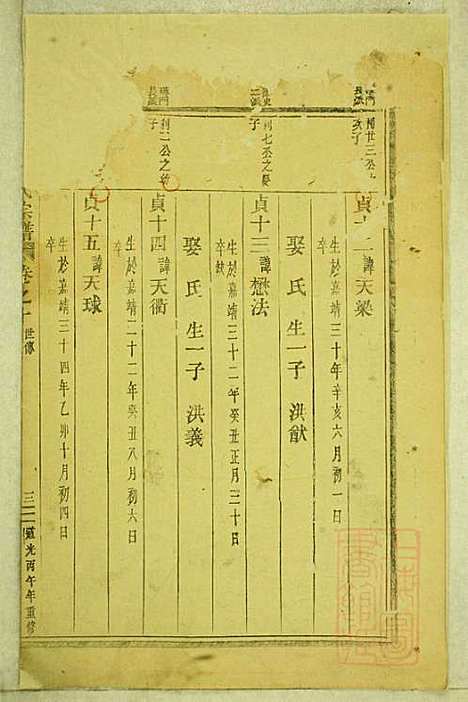 利廿三公
次子
貞十二諱天梁
生於嘉靖三十年辛亥六月初一日
卒
娶 氏 生一子 洪猷
三派
利七丞之長
子
貞十三諱懋法
生於嘉靖三十二年癸丑正月三十日
卒缺
娶 氏 生一子 洪義
長派
利二公之
子
貞十四諱天衢
生於嘉靖三十二年癸丑八月初六日
卒
貞十五諱天球
生於嘉靖三十四年乙卯十月初四日
卒
氏宗譜 卷之 世傳
道光丙午年重修